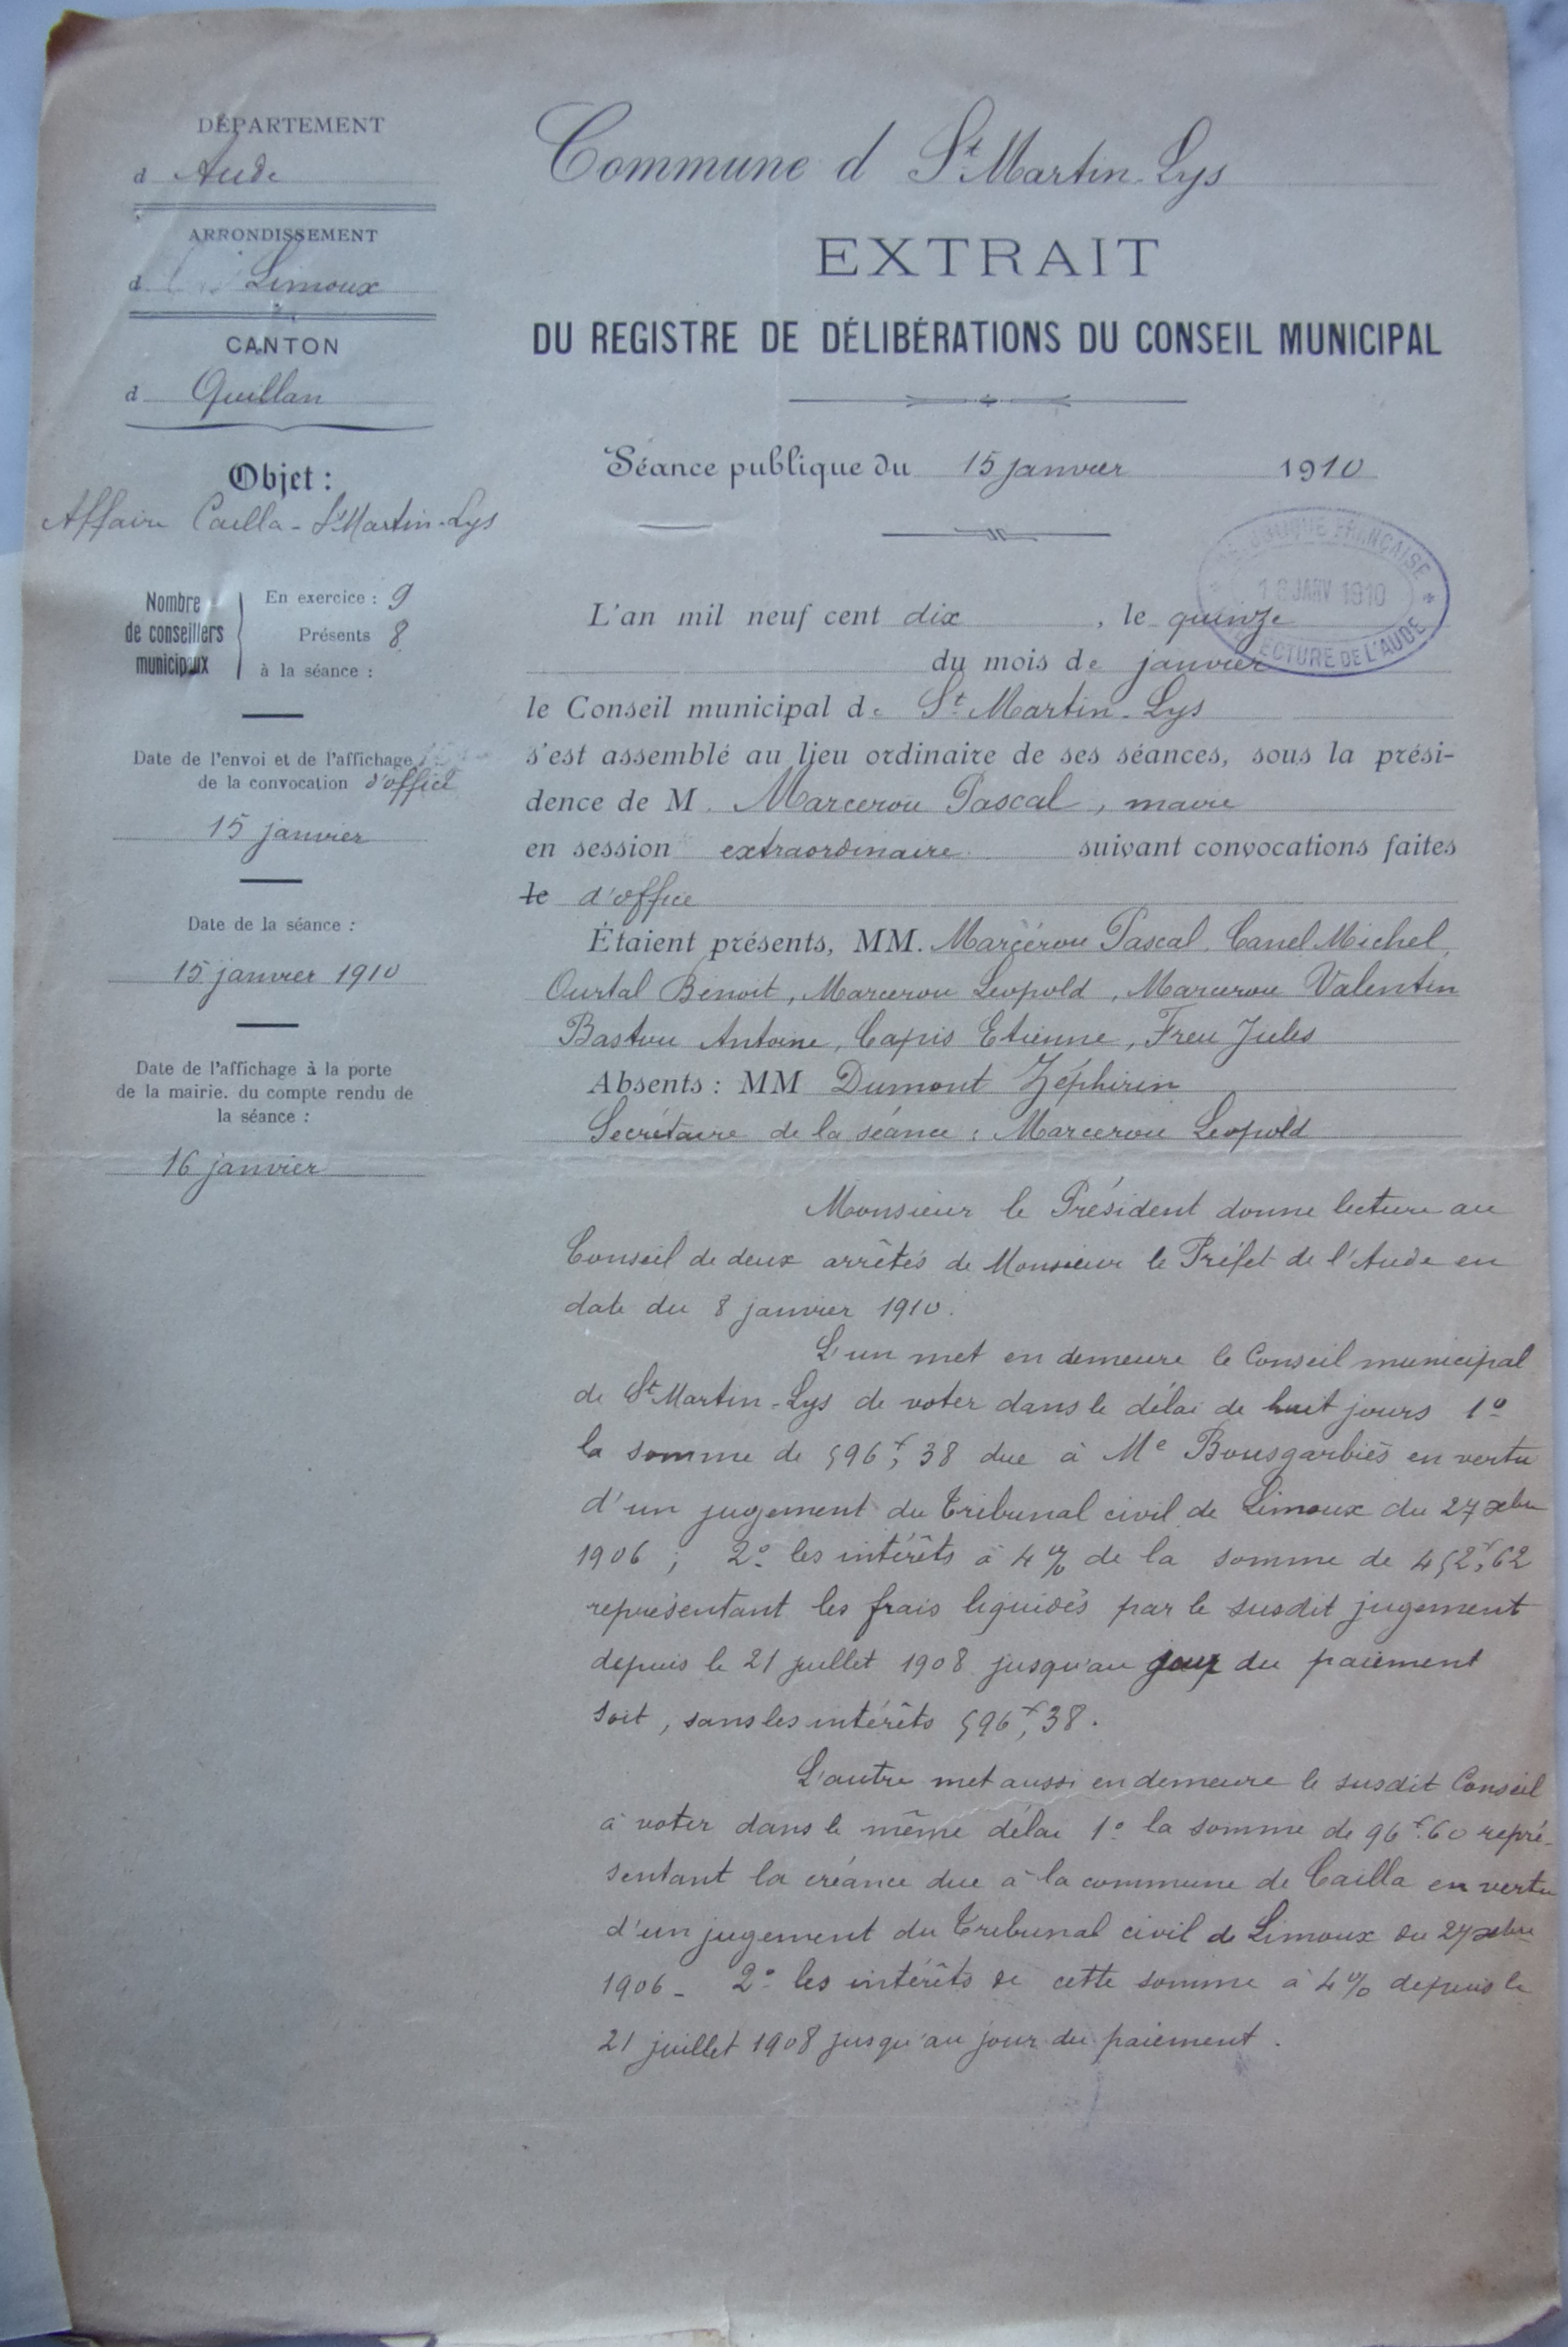 DÉPARTEMENT
d Aude
ARRONDISSEMENT
d Limoux
CANTON
d Quillan
Objet :
Affaire Cailla - St Martin-Lys
Nombre de conseillers municipaux
En exercice : 9
Présents 8
à la séance :
Date de l'envoi et de l'affichage
de la convocation d'office
15 janvier
Date de la séance :
15 janvier 1910
Date de l'affichage à la porte
de la mairie. du compte rendu de
la séance :
16 janvier
Commune d St Martin-Lys
EXTRAIT
DU REGISTRE DE DÉLIBÉRATIONS DU CONSEIL MUNICIPAL
Séance publique du 15 janvier 1910
FRANÇAISE
JANV 1910
ECTURE DE L'AUDE
L'an mil neuf cent dix , le quinze
du mois de janvier
le Conseil municipal de St Martin-Lys
s'est assemblé au lieu ordinaire de ses séances, sous la prési-
dence de M. Marcerou Pascal, maire
en session extraordinaire suivant convocations faites
le d'office
Étaient présents, MM. Marcérou Pascal, Canel Michel,
Ourtal Benoit, Marcerou Leopold, Marcerou Valentin
Bastou Antoine, Capis Etienne, Freu Jules
Absents : MM Dumont Zéphirin
Secrétaire de la séance : Marcerou Leopold
Monsieur le Président donne lecture au
Conseil de deux arrêtés de Monsieur le Préfet de l'Aude en
date du 8 janvier 1910.
L'un met en demeure le Conseil municipal
de St Martin-Lys de voter dans le délai de huit jours 1º
la somme de 596f,38 due à Me Bousgarbiès en vertu
d'un jugement du Tribunal civil de Limoux du 27 xbre
1906 ; 2º les intérêts à 4 % de la somme de 452f,62
représentant les frais liquidés par le susdit jugement
depuis le 21 juillet 1908 jusqu'au jour du paiement
soit, sans les intérêts 596f,38.
L'autre met aussi en demeure le susdit Conseil
à voter dans le même délai 1º la somme de 96f.60 repré-
sentant la créance due à la commune de Cailla en vertu
d'un jugement du Tribunal civil de Limoux du 27 xbre
1906 - 2º les intérêts de cette somme à 4 % depuis le
21 juillet 1908 jusqu'au jour du paiement.